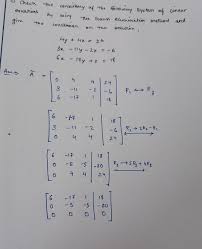 1) Check the consistency of the following system of linear
equations by using the Gauss elimination method and
give the comment on the solution.
4y + 4z = 24
3x - 11y - 2z = -6
6x - 17y + z = 18
Ans:)
[ 0 4 4 | 24
3 -11 -2 | -6
6 -17 1 | 18 ] R₁ ↔ R₃
[ 6 -17 1 | 18
3 -11 -2 | -6
0 4 4 | 24 ]
[ 6 -17 1 | 18
0 -5 -5 | -30
0 4 4 | 24 ]
[ 6 -17 1 | 18
0 -5 -5 | -30
0 0 0 | 0 ]